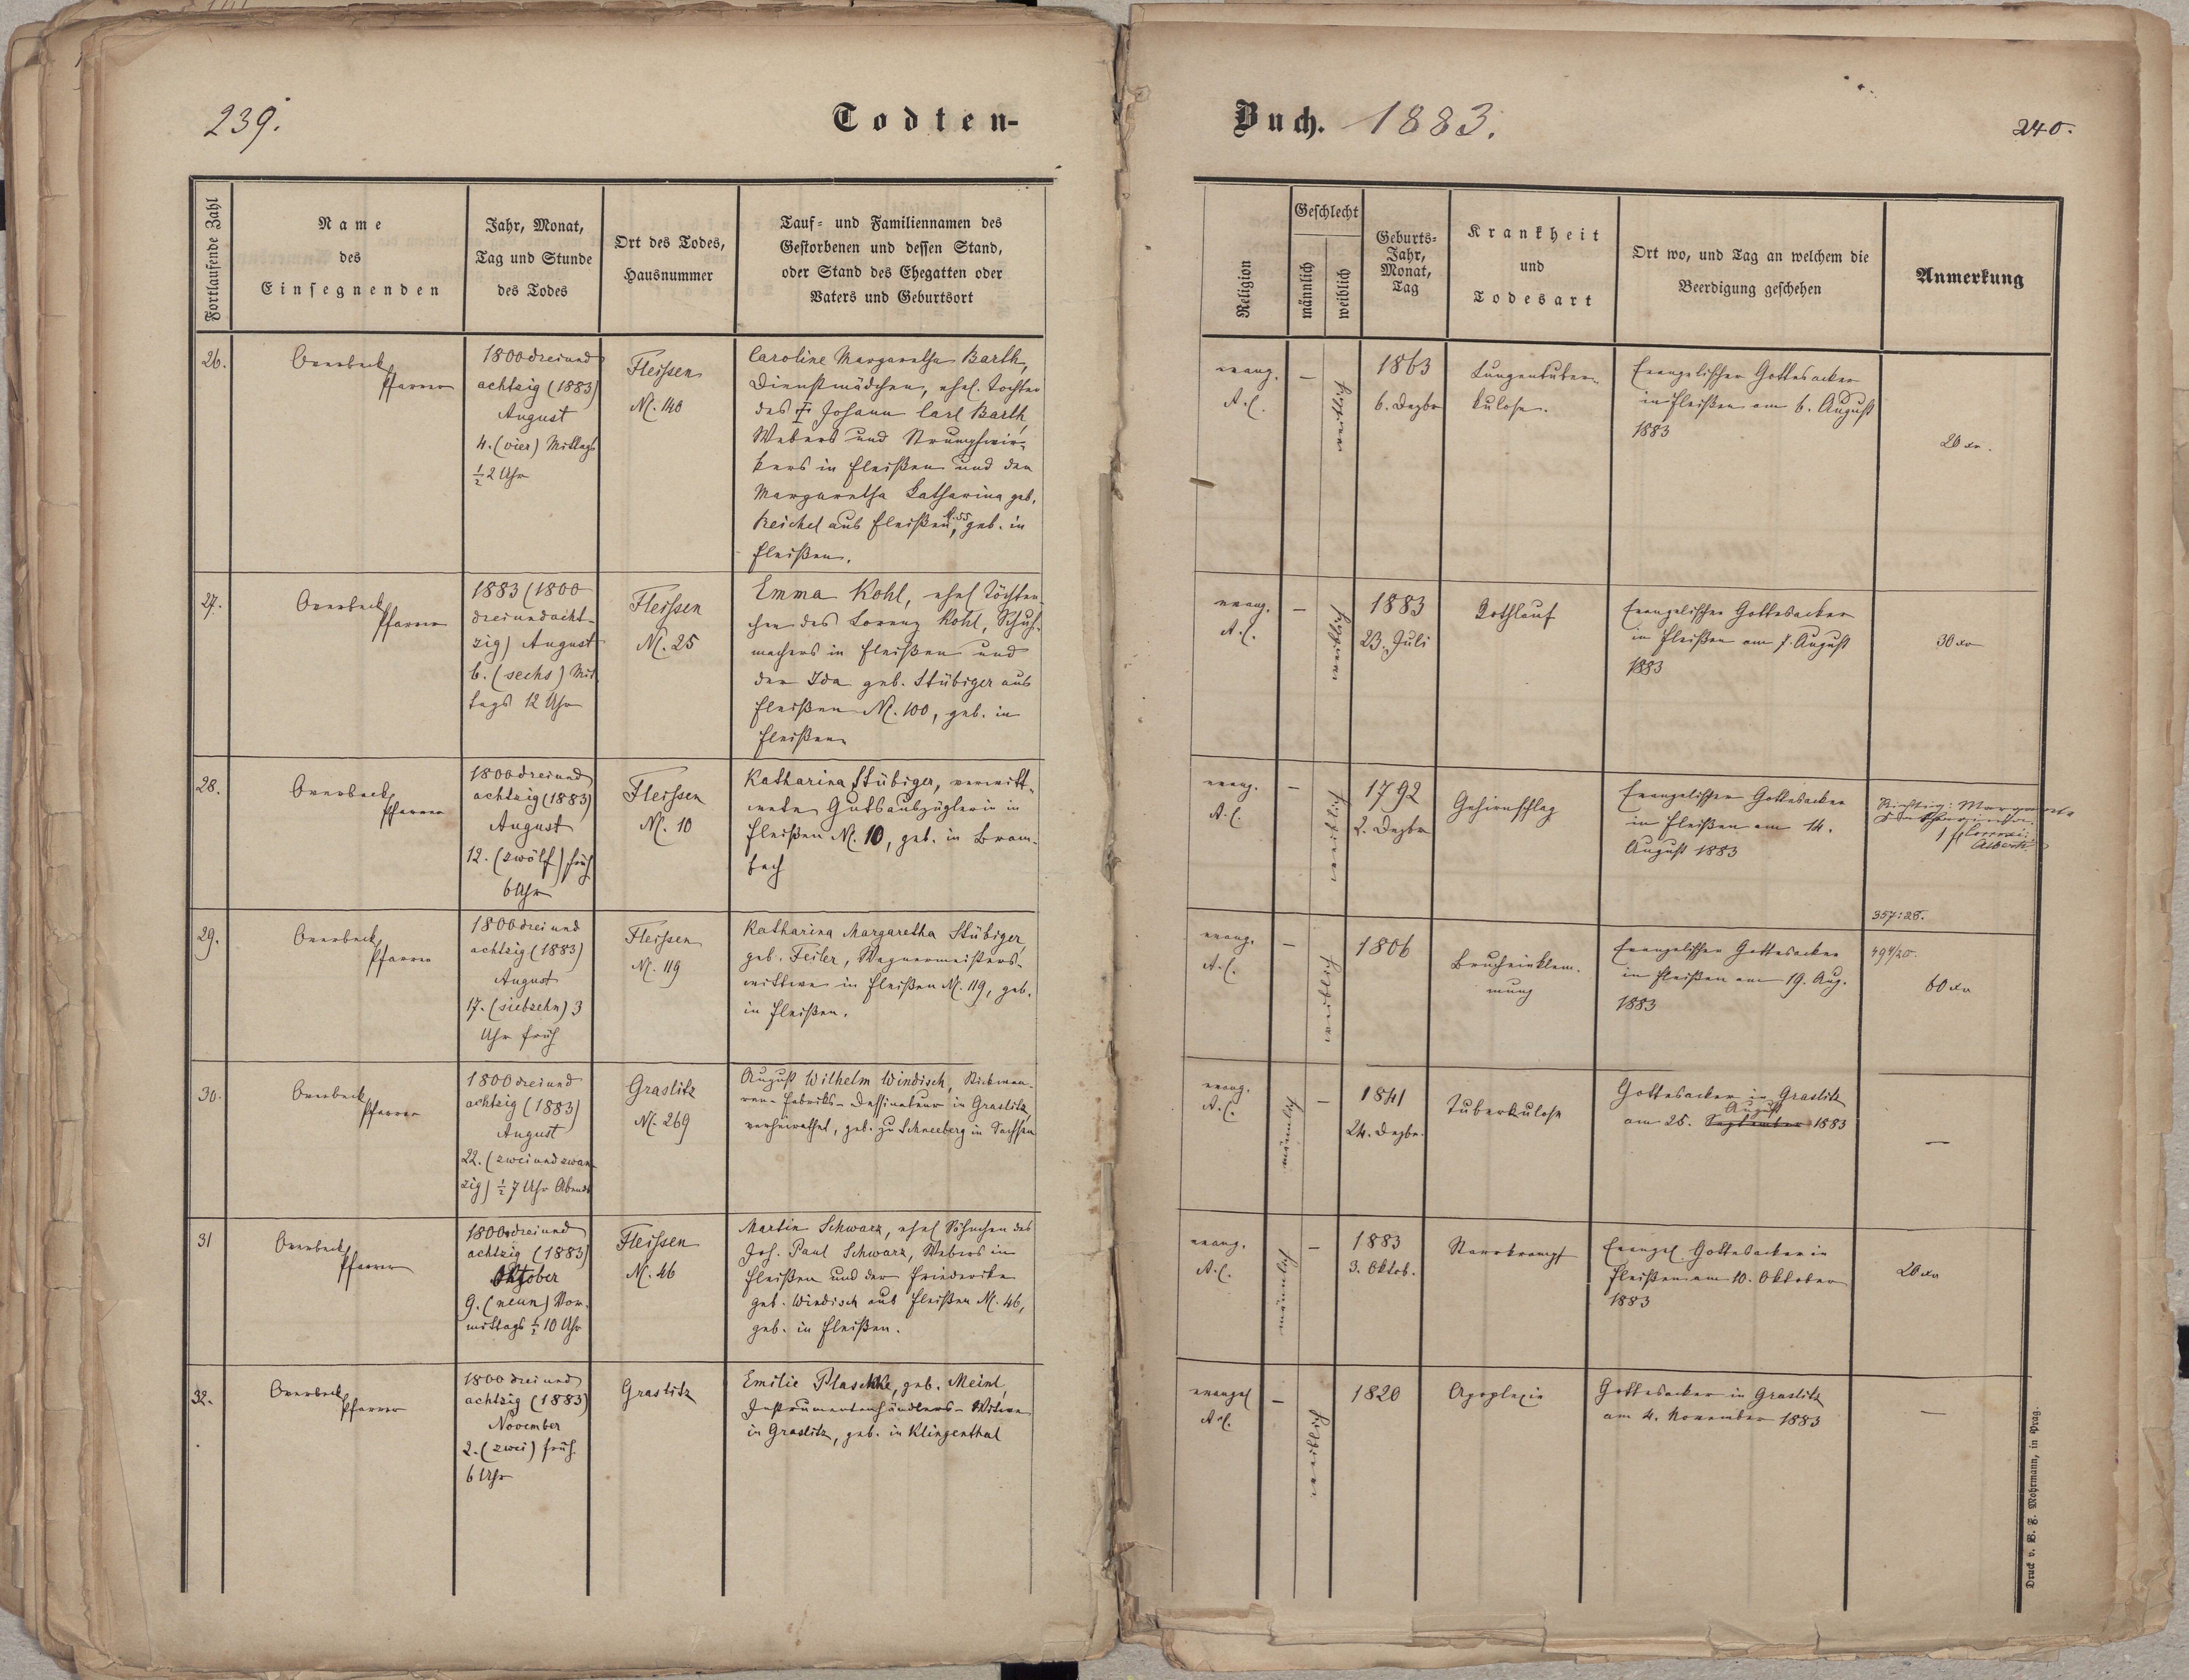 239.
Todten-
Fortlaufende Zahl
Name
des
Einsegnenden
Jahr, Monat,
Tag und Stunde
des Todes
Ort des Todes,
Hausnummer
Tauf- und Familiennamen des
Gestorbenen und dessen Stand,
oder Stand des Ehegatten oder
Vaters und Geburtsort
26.
Overbeck
Pfarrer
1800 drei und
achtzig (1883)
August
4. (vier) Mittags
½2 Uhr
Fleissen
N. 140
Caroline Margaretha Barth,
Dienstmädchen, ehel. Tochter
des Johann Carl Barth,
Webers und Strumpfwir-
kers in Fleißen und der
Margaretha Catharina geb.
Reichel aus Fleißen N. 55, geb. in
Fleißen.
27.
Overbeck
Pfarrer
1883 (1800
dreiundacht-
zig) August
6. (sechs) Mit
tags 12 Uhr
Fleissen
N. 25
Emma Kohl, ehel Töchter-
chen des Lorenz Kohl, Schuh-
machers in Fleißen und
der Ida geb. Stübiger aus
Fleißen N. 100, geb. in
Fleißen
28.
Overbeck
Pfarrer
1800 drei und
achtzig (1883)
August
12. (zwölf) früh
6 Uhr
Fleissen
N. 10
Katharina Stübiger, verwitt-
wete Gutsauszüglerin in
Fleißen N. 10, geb. in Bram-
bach
29.
Overbeck
Pfarrer
1800 drei und
achtzig (1883)
August
17. (siebzehn) 3
Uhr früh
Fleissen
N. 119
Katharina Margaretha Stübiger,
geb. Feiler, Wagnermeisters-
wittwe in Fleißen N. 119, geb.
in Fleißen.
30.
Overbeck
Pfarrer
1800 drei und
achtzig (1883)
August
22. (zwei und zwan-
zig) ½7 Uhr Abends
Graslitz
N. 269
August Wilhelm Windisch, Stickwaa-
ren-Fabriks-Dessinateur in Graslitz,
verheirathet, geb. zu Schneeberg in Sachsen
31
Overbeck
Pfarrer
1800 drei und
achtzig (1883)
Oktober
9. (neun) Vor-
mittags ½ 10 Uhr
Fleissen
N. 46
Martin Schwarz, ehel Söhnchen des
Joh. Paul Schwarz, Webers in
Fleißen und der Friederike
geb. Windisch aus Fleißen N. 46,
geb. in Fleißen.
32.
Overbeck
Pfarrer
1800 drei und
achtzig (1883)
November
2. (zwei) früh
6 Uhr
Graslitz
Emilie Plaschke, geb. Meinl,
Instrumentenhändlers-Witwe
in Graslitz, geb. in Klingenthal
Buch. 1883.
240.
Religion
Geschlecht
männlich
weiblich
Geburts-
Jahr,
Monat,
Tag
Krankheit
und
Todesart
Ort wo, und Tag an welchem die
Beerdigung geschehen
Anmerkung
evang.
A. C.
–
weiblich
1863
6. Dezbr
Lungentuber-
kulose.
Evangelischer Gottesacker
in Fleißen am 6. August
1883
20 xr.
evang.
A. C.
–
weiblich
1883
23. Juli
Rothlauf
Evangelischer Gottesacker
in Fleißen am 7. August
1883
30 xr
evang.
A. C.
–
weiblich
1792
2. Dezbr
Gehirnschlag
Evangelischer Gottesacker
in Fleißen am 14.
August 1883
Richtig: Margareta
1 fl
357:28.
evang.
A. C.
–
weiblich
1806
Brucheinklem-
mung
Evangelischer Gottesacker
in Fleißen am 19. Aug.
1883
494/20.
60 xr
evang.
A. C.
männlich
–
1841
24. Dezbr.
Tuberkulose
Gottesacker in Graslitz
August
am 25. September 1883
–
evang.
A. C.
männlich
–
1883
3. Oktob.
Starrkrampf
Evangel Gottesacker in
Fleißen am 10. Oktober
1883
20 xr
evangel
A. C.
–
weiblich
1820
Apoplexie
Gottesacker in Graslitz
am 4. November 1883
–
Druck v. B. F. Mohrmann, in Prag.